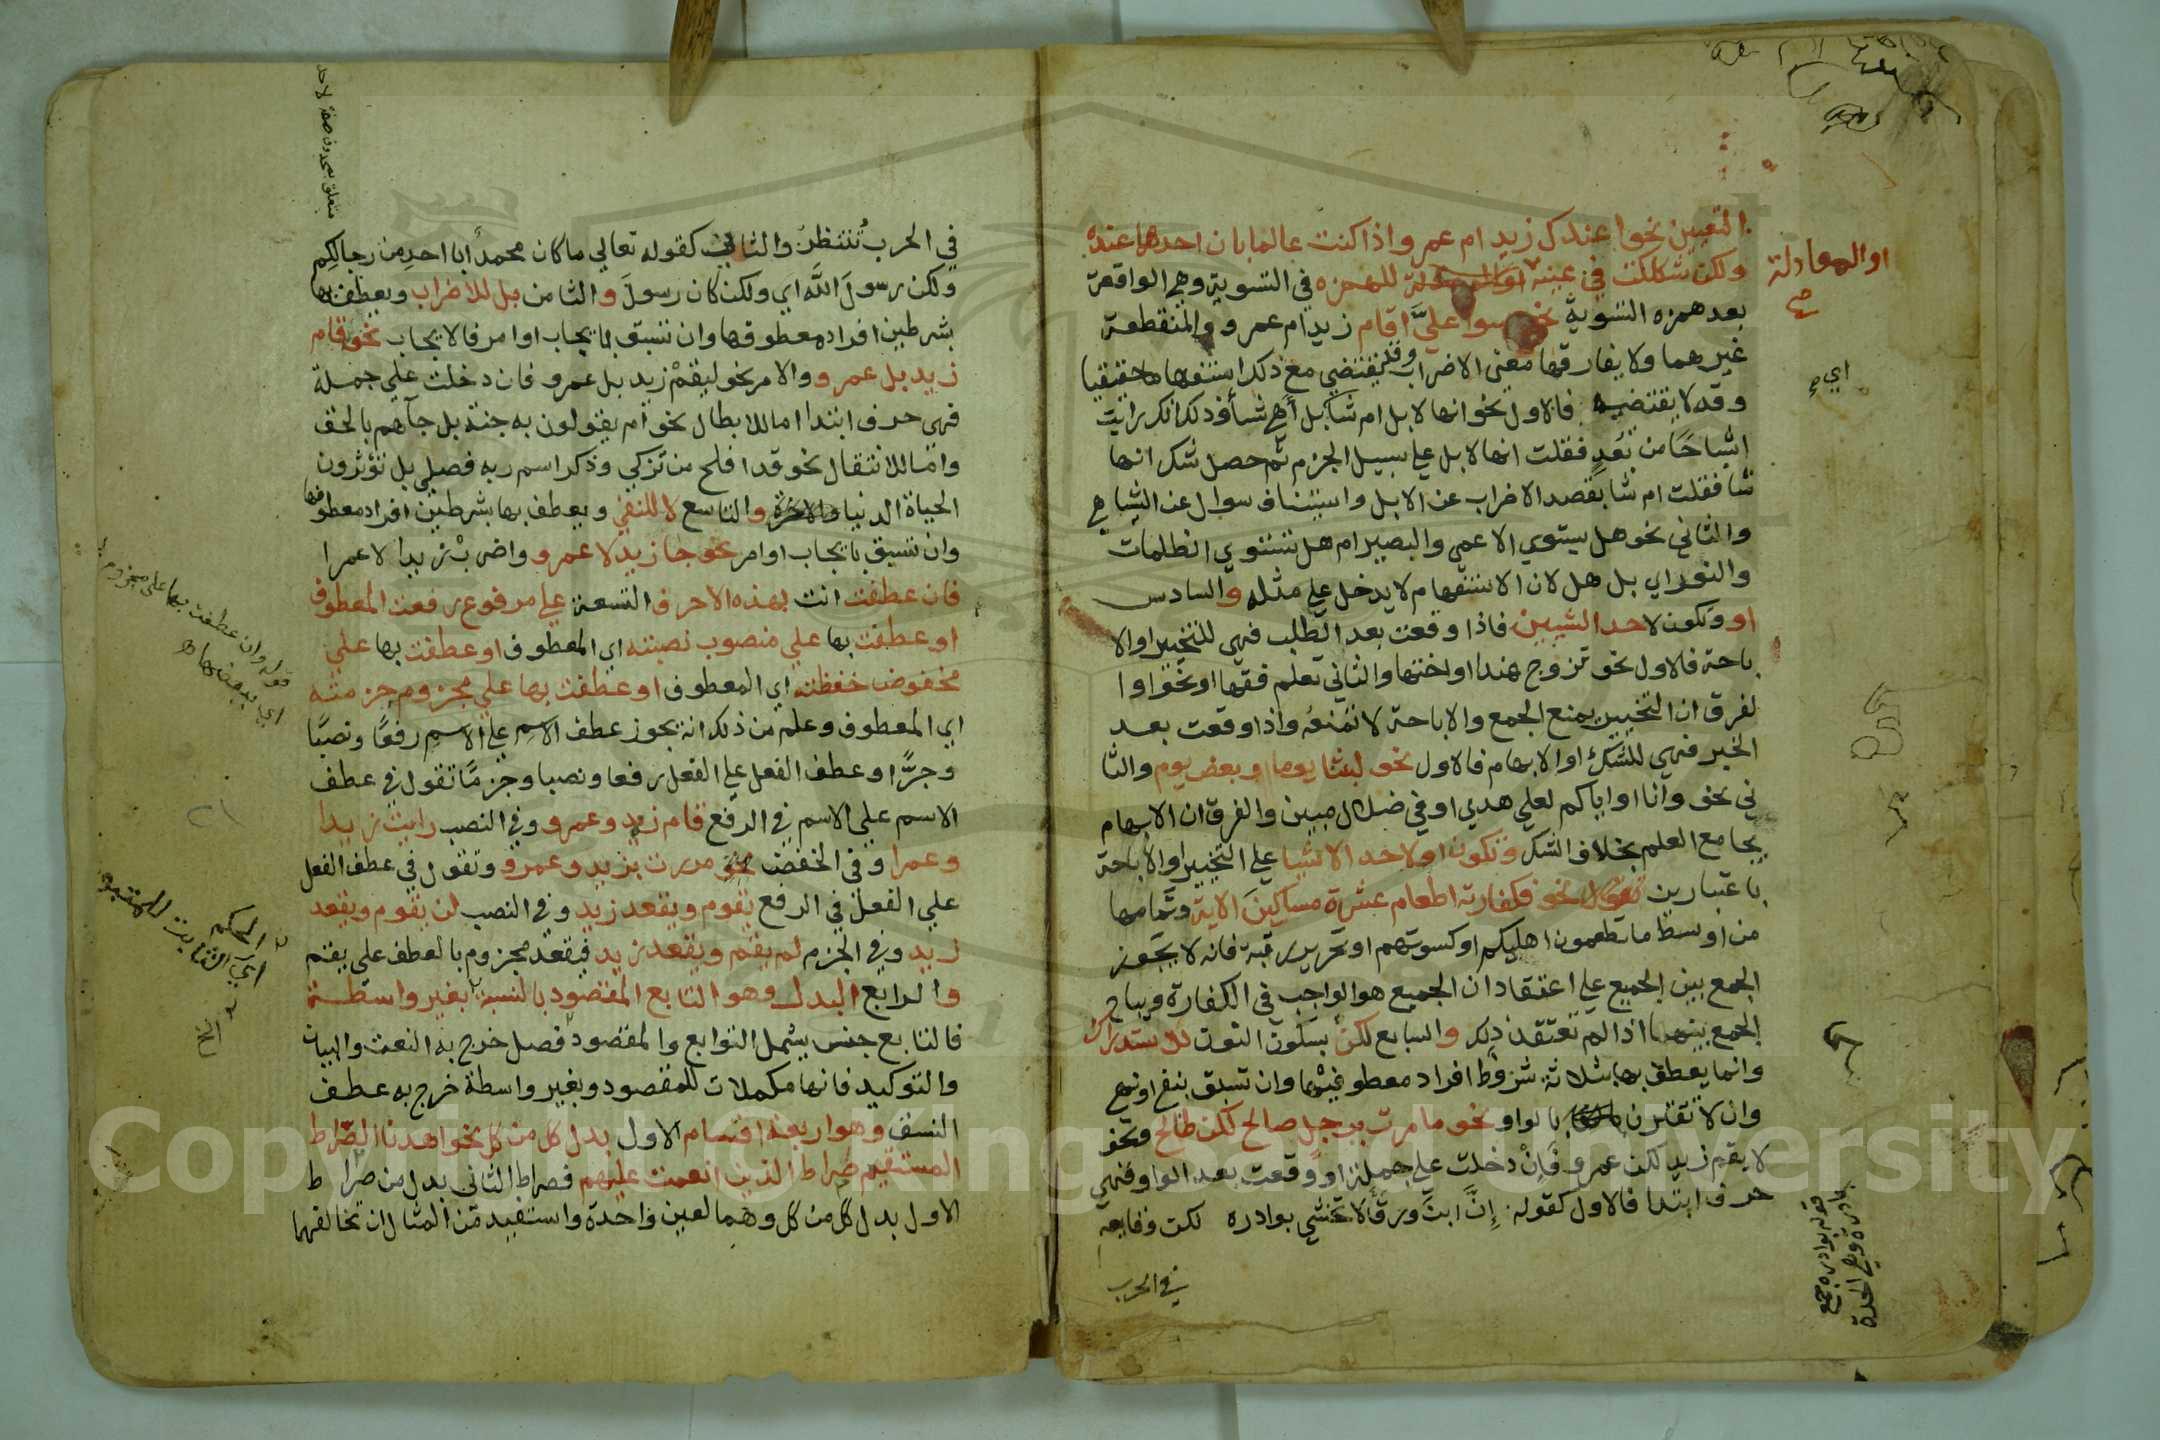 التعيين نحو اعندك زيد ام عمرو واذا كنت عالما بان احدهما عنده
ولكن شككت في عينه او المعادلة للهمزه في التسوية وهي الواقعة
بعد همزه التسوية نحو سوا عليَّ اقام زيد ام عمرو والمنقطعة
غيرهما ولا يفارقها معنى الاضراب وقد يقتضي مع ذكر استفهاما حقيقيا
وقد لا يقتضيه فالاول نحو انها لابل ام شا بل أهي شا وذلك انك رايت
اشباحًا من بُعدٍ فقلت انها لابل علي سبيل الجزم ثم حصل شك انها
شا فقلت ام شا بقصد الاضراب عن الابل واستيناف سوال عن الشياه
والثاني نحو هل يستوي الاعمى والبصير ام هل تستوي الظلمات
والنور اي بل هل لان الاستفهام لا يدخل علي مثله والسادس
او وتكون لاحد الشيين فاذا وقعت بعد الطلب فهي للتخيير او الا
باحة فالاول نحو تزوج هندا او اختها والثاني تعلم فقها او نحوا وا
لفرق ان التخيير يمنع الجمع والاباحة لا تمنعه واذا وقعت بعد
الخبر فهي للشك او الابهام فالاول نحو لبثنا يوما او بعض يوم والثا
ني نحو وانا او اياكم لعلي هدي او في ضلال مبين والفرق ان الابهام
يجامع العلم بخلاف الشك وتكون او لاحد الاشيا علي التخيير او الاباحة
باعتبارين نحو فكفارته اطعام عشرة مساكين الاية وتمامها
من اوسط ما تطعمون اهليكم او كسوتهم او تحرير رقبة فانه لا يجوز
الجمع بين الجميع علي اعتقاد ان الجميع هو الواجب في الكفارة ويباح
الجمع بينهما اذا لم تعتقد ذلك والسابع لكن بسكون النون للاستدراك
وانما يعطف بها بثلاثة شروط افراد معطوفيها وان تسبق بنفي او نهي
وان لا تقترن بالواو نحو ما مررت برجل صالح لكن طالح ونحو
لا يقم زيد لكن عمرو فَاِنْ دخلت علي جملة او وقعت بعد الواو فهي
حرف ابتدا فالاول كقوله إنَّ ابنَ ورقَا لا تخشى بوادره لكن وقايعه
في الحرب
او المعادلة
صح
اي
قوله بوادره جمع
بادرة وهي الحدة
في الحرب تُنتظرُ والثاني كقوله تعالي ما كان محمدٌ أبا احدٍ من رجالكم
ولكن رسولَ اللَّه اي ولكن كان رسولَ والثامن بل للاضراب ويعطف بها
بشرطين افراد معطوفها وان تسبق بايجاب او امر فالايجاب نحو قام
زيد بل عمرو والامر نحو ليقمْ زيد بل عمرو فان دخلت علي جملة
فهي حرف ابتدا اما للابطال نحو ام يقولون به جنة بل جآهم بالحق
واما للانتقال نحو قد افلح من تزكي وذكر اسم ربه فصلي بل تؤثرون
الحياة الدنيا والتاسع لا للنفي ويعطف بها بشرطين افراد معطوفها
وان تسبق بايجاب او امر نحو جا زيد لا عمرو واضربْ زيدا لا عمرا
فان عطفت انت بهذه الاحرف التسعة علي مرفوع رفعت المعطوف
او عطفت بها علي منصوب نصبته اي المعطوف او عطفت بها علي
مخفوض خفظته اي المعطوف او عطفت بها علي مجزوم جزمته
اي المعطوف وعلم من ذلك انه يجوز عطف الاسمِ علي الاسمِ رفعًا ونصبًا
وجرًّا وعطف الفعل علي الفعل رفعا ونصبا وجزمًا تقول في عطف
الاسم علي الاسم في الرفع قام زيد وعمرو وفي النصب رايت زيدا
وعمرا وفي الخفض نحو مررت بزيد وعمرو وتقول في عطف الفعل
علي الفعل في الرفع يقوم ويقعد زيد وفي النصب لن يقوم ويقعد
زيد وفي الجزم لم يقم ويقعد زيد فيقعد مجزوم بالعطف على يقم
والرابع البدل وهو التابع المقصود بالنسبة بغير واسطة
فالتابع جنس يشمل التوابع والمقصود فصل خرج به النعت والبيان
والتوكيد فانها مكملات للمقصود وبغير واسطة خرج به عطف
النسق وهو اربعة اقسام الاول بدل كل من كل نحو اهدنا الصراط
المستقيم صراط الذين انعمت عليهم فصراط الثاني بدل من صراط
الاول بدل كل من كل وهما لعين واحدة واستفيد من المثال ان تخالفهما
متعلق بمحذوف صفة لاحد
قوله وان عطفت بها على مجزوم
اي بعضها
Copyright © King Saud University